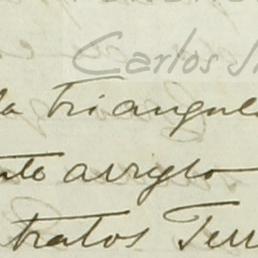 Carlos
la triangul
nte arreglo
tratos Terr